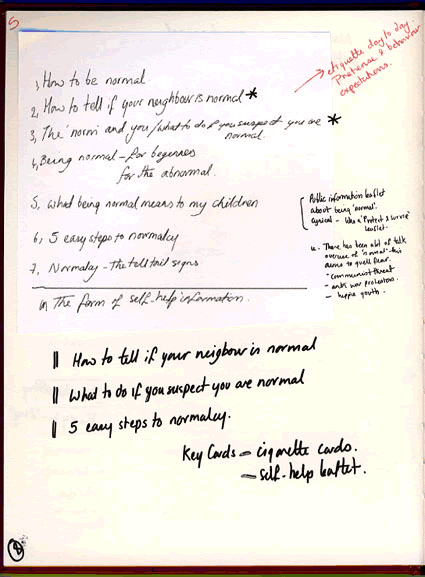 5
etiquette day to day.
Pretense & behaviour
expectations.
1, How to be normal
2, How to tell if your neighbour is normal *
3, The 'norm' and you/what to do if you suspect you are *
normal.
4, Being normal - for beginners
for the abnormal.
5, what being normal means to my children
6, 5 easy steps to normalcy
7, Normalcy - The tell tail signs
In The form of self-help information.
Public information leaflet
about being 'normal'.
cynical - like a 'Protect & Survive'
leaflet.
There has been a lot of talk
overuse of 'normal' this
aims to quell fear.
- communist threat
- anti war protestors
- hippie youth.
|| How to tell if your neigbour is normal
|| What to do if you suspect you are normal
|| 5 easy steps to normalcy.
Key Cards - cigarette cards.
- self-help leaflet.